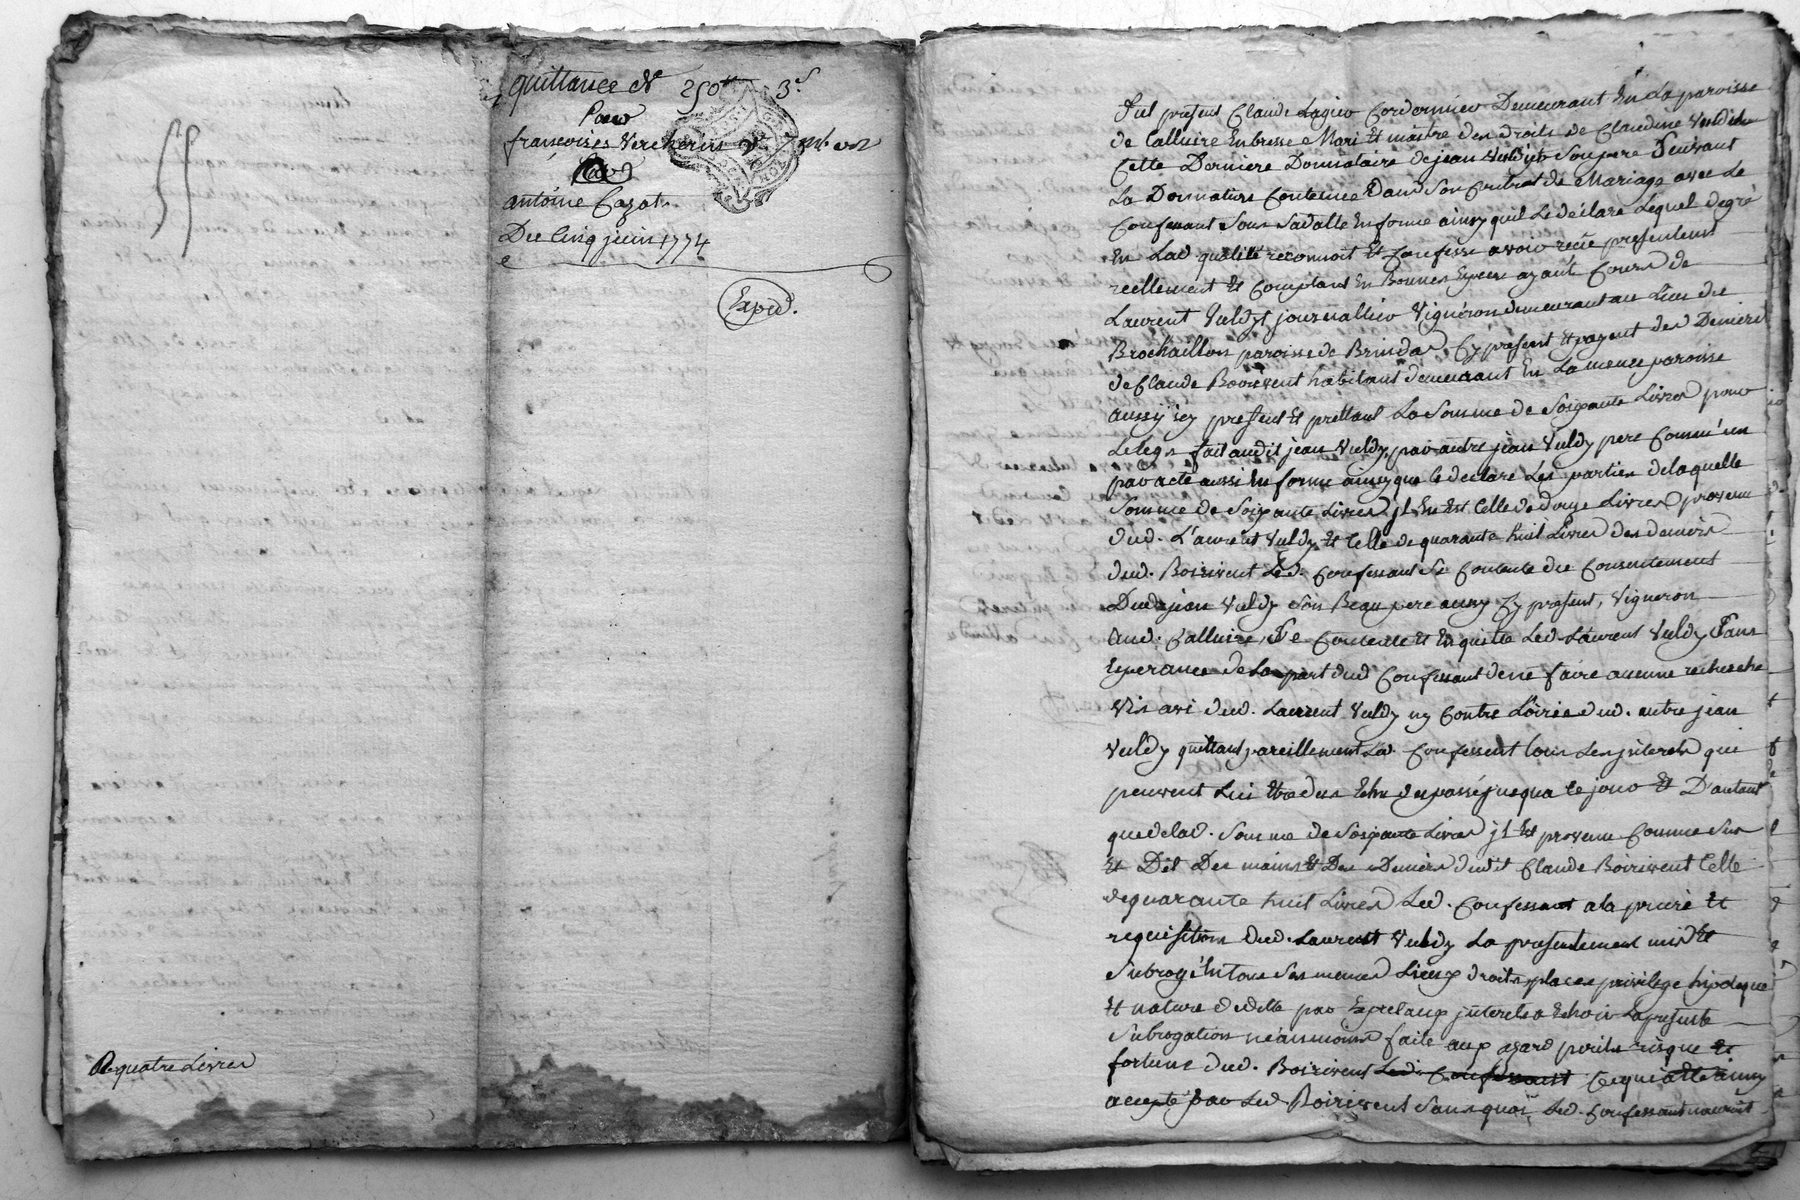 quittance de 250ᵗᵗ 3ˢ
Pour
françoises Vercherin
Par
antoine Cazot
Du Cinq juin 1774
Expéd.
De quatre Livres
Fut présent Claude Cordonnier Demeurant En La paroisse
de Calluire En bresse Mari Et maitre des droits de Claudine Vuldy
Cette Derniere Donnataire de jean Vuldy Son pere Suivant
La Donnation Contenüe Dans Son Contrat de Mariage avec Le
Confessant Sous Sa datte En forme ainsy quil Le déclare Lequel de gré
En Lad qualité reconnoit Et Confesse avoir recüe presentement
reellement Et Comptant En Bonnes Especes ayant Cours de
Laurent Vuldy journallier Vigneron demeurant au Lieu de
Brochaillon paroisse de Brindas Cy present Et payent des Deniers
de Claude Boirivent habitant demeurant En La meme paroisse
aussy icy present Et prettant La Somme de Soixante Livres pour
Le legs fait audit jean Vuldy par autre jean Vuldy pere Commun
par acte aussi En forme ainsy que le declare Les parties de laquelle
Somme de Soixante Livres jl En Est Celle de douze Livres provenu
dud. Laurent Vuldy Et Celle de quarante huit Livres des deniers
dud. Boirivent Led. Confessant Se Contente du Consentement
Dud jean Vuldy Son Beau pere aussy Cy present, Vigneron
aud. Calluire, Se Contente Et En quitte Led. Laurent Vuldy Sans
Esperance de La part dud Confessant de ne faire aucune recherche
Vis avi dud. Laurent Vuldy ny Contre L'oirie dud. autre jean
Vuldy quittant pareillement Led. Confessant tous Les jnterets qui
peuvent Lui Etre dus Echu du passé jusqua Ce jour Et D'autant
que de lad. Somme de Soixante Livres jl Est provenu Comme Sus
Et Dit Des mains Et Des Deniers dudit Claude Boirivent Celle
de quarante huit Livres Led. Confessant a la priere Et
requisition dud. Laurent Vuldy La presentement mis Et
Subrogé En tous Ses memes Lieux droits, places privilege hipoteque
Et nature de dette par Exprès aux jnterets a Echoir La presente
Subrogation néanmoins faite aux azard perils risque Et
fortune dud. Boirivent Ce qui a Eté ainsy
accepté par Led Boirivent Sans quoi Led. Confessant nauroit